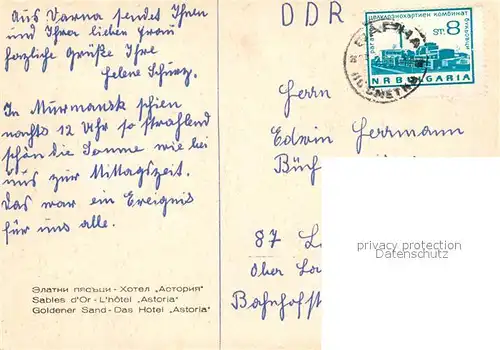 Aus Varna sendet Ihnen
und Ihrer lieben Frau
herzliche Grüße Ihre
Helene Schurz.
In Murmansk schien
nachts 12 Uhr so strahlend
schön die Sonne wie bei
uns zur Mittagszeit.
Das war ein Ereignis
für uns alle.
Златни пясъци - Хотел „Астория"
Sables d'Or - L'hôtel „Astoria"
Goldener Sand - Das Hotel „Astoria"
DDR
целулознохартиен комбинат
СТ. 8
NRBULGARIA
ВАРНА
Herrn
Edwin Herrmann
Büch
87 L
Ober La
Bahnhofst
privacy protection
Datenschutz